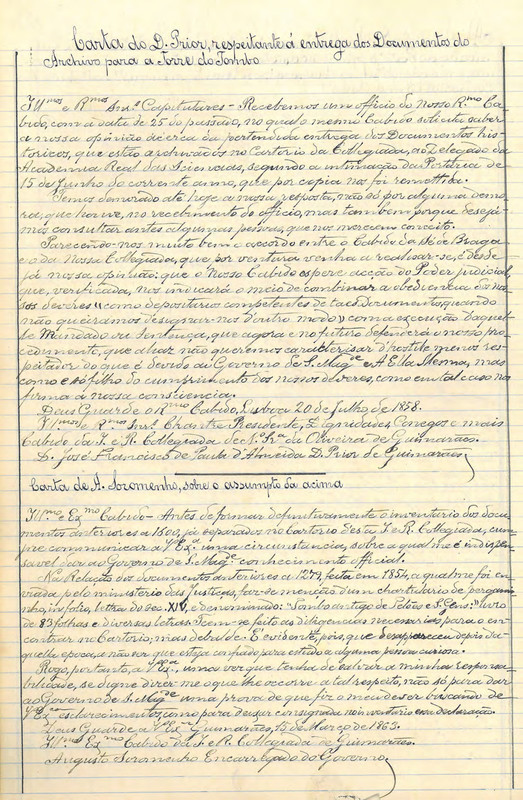 Carta do D. Prior, respeitante á entrega dos Documentos do
Archivo para a Torre do Tombo
Ill.mos e R.mos Snrs. Capitulares - Recebemos um officio do Nosso R.mo Ca-
bido, com a data de 25 do passado, no qual o mesmo Cabido solicita saber
a nossa opinião ácerca da pertendida entrega dos Documentos his-
toricos, que estão archivados no Cartorio da Collegiada, ao Delegado da
Academia Real das Sciencias, segundo a intimação da Portaria de
15 de Junho do corrente anno, que por copia nos foi remettida.
Temos demorado até hoje a nossa resposta, não só por alguma demo-
ra, que houve, no recebimento do officio, mas tambem porque desejá-
mos consultar antes algumas pessoas, que nos merecem conceito.
Parecendo-nos muito bem o accordo entre o Cabido da Sé de Braga
e o da Nossa Collegiada, que por ventura venha a realisar-se, é desde
já nossa opinião; que o Nosso Cabido espere acção do Poder judicial,
que, verificada, nos indicará o meio de combinar a obediencia dos nos-
sos deveres «como depositarios competentes de taes Documentos, quando
não queiramos designar-nos d'outro modo» com a execução d'aquel-
le Mandado ou Sentença, que agora e no futuro defenderá o nosso pro-
cedimento, que aliaz não queremos caractérisar d'hostil e menos res-
peitador do que é devido ao Governo de S. Mag.de e A Ella Mesma, mas
como é só filho do cumprimento dos nossos deveres, como em tal caso nos
firma a nossa consciencia.
Deus Guarde o R.mo Cabido, Lisboa 20 de Julho de 1858.
Ill.mos e R.mos Snrs. Chantre Presidente, Dignidades, Conegos e mais
Cabido da I. e R. Collegiada de N. Sr.ra da Oliveira de Guimarães.
D. José Francisco de Paula d'Almeida D. Prior de Guimarães
Carta de A. Soromenho, sobre o assumpto da acima
Ill.mo e Ex.mo Cabido - Antes de formar definitivamente o inventario dos docu-
mentos anteriores a 1600, já separados no Cartorio desta I. e R. Collegiada, cum-
pre-me communicar a V. Ex.ª uma circunstancia, sobre a qual me é indispen-
savel dar ao Governo de S. Mag.de conhecimento official.
Na Relação dos documentos anteriores a 1279, feita em 1854, a qual me foi en-
viada pelo ministerio das Justiças, faz-se menção d'um chartulario de pergami-
nho, in folio, letra do sec. XIV, e denominado: "Tombo antigo de Telões e S. Gens: livro
de 83 folhas e diversas letras. Tem-se feito as diligencias necessarias para o en-
contrar no Cartorio, mas debalde. É evidente, pois, que desappareceu depois da-
quella epoca, a não ser que esteja confiado para estudo a alguma pessoa curiosa.
Rogo, portanto, a V. Ex.ª, uma vez que tenha de salvar a minha responsa-
bilidade, se digne dizer-me o que lhe occorre a tal respeito, não só para dar
ao Governo de S. Mag.de uma prova de que fiz o meu dever buscando de
V. Ex.ª esclarecimentos, como para deixar consignada no inventario esta declaração.
Deus Guarde a V. Ex.ª Guimarães, 15 de Março de 1863.
Ill.mo e Ex.mo Cabido da I. e R. Collegiada de Guimarães.
Augusto Soromenho Encarregado do Governo.